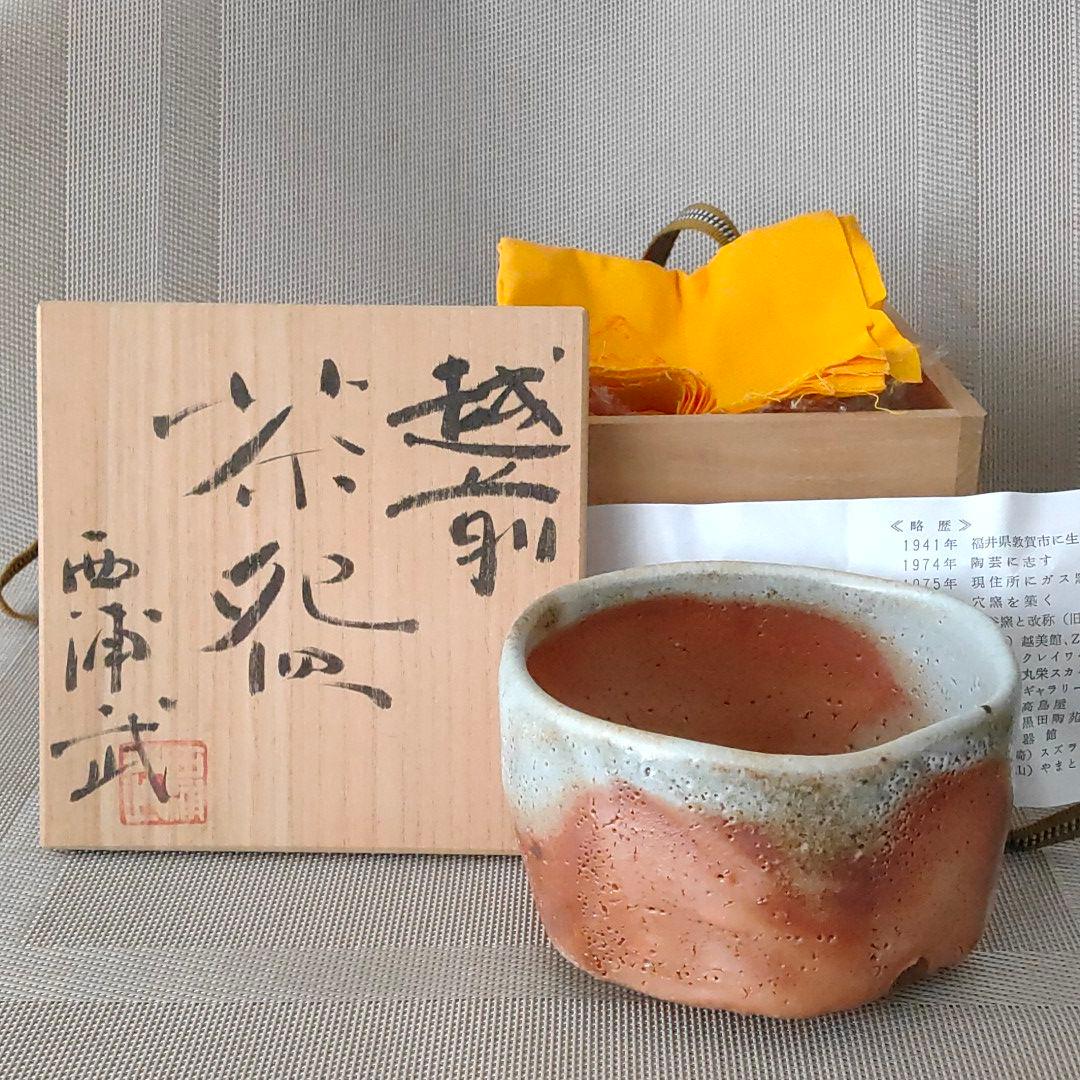 越前
茶盌
西浦武
≪略歴≫
1941年 福井県敦賀市に生
1974年 陶芸に志す
1975年 現住所にガス窯
穴窯を築く
窯と改称(旧
越美館、Z
クレイワ
丸栄スカ
ギャラリー
高島屋
黒田陶苑
器館
スズラ
やまと